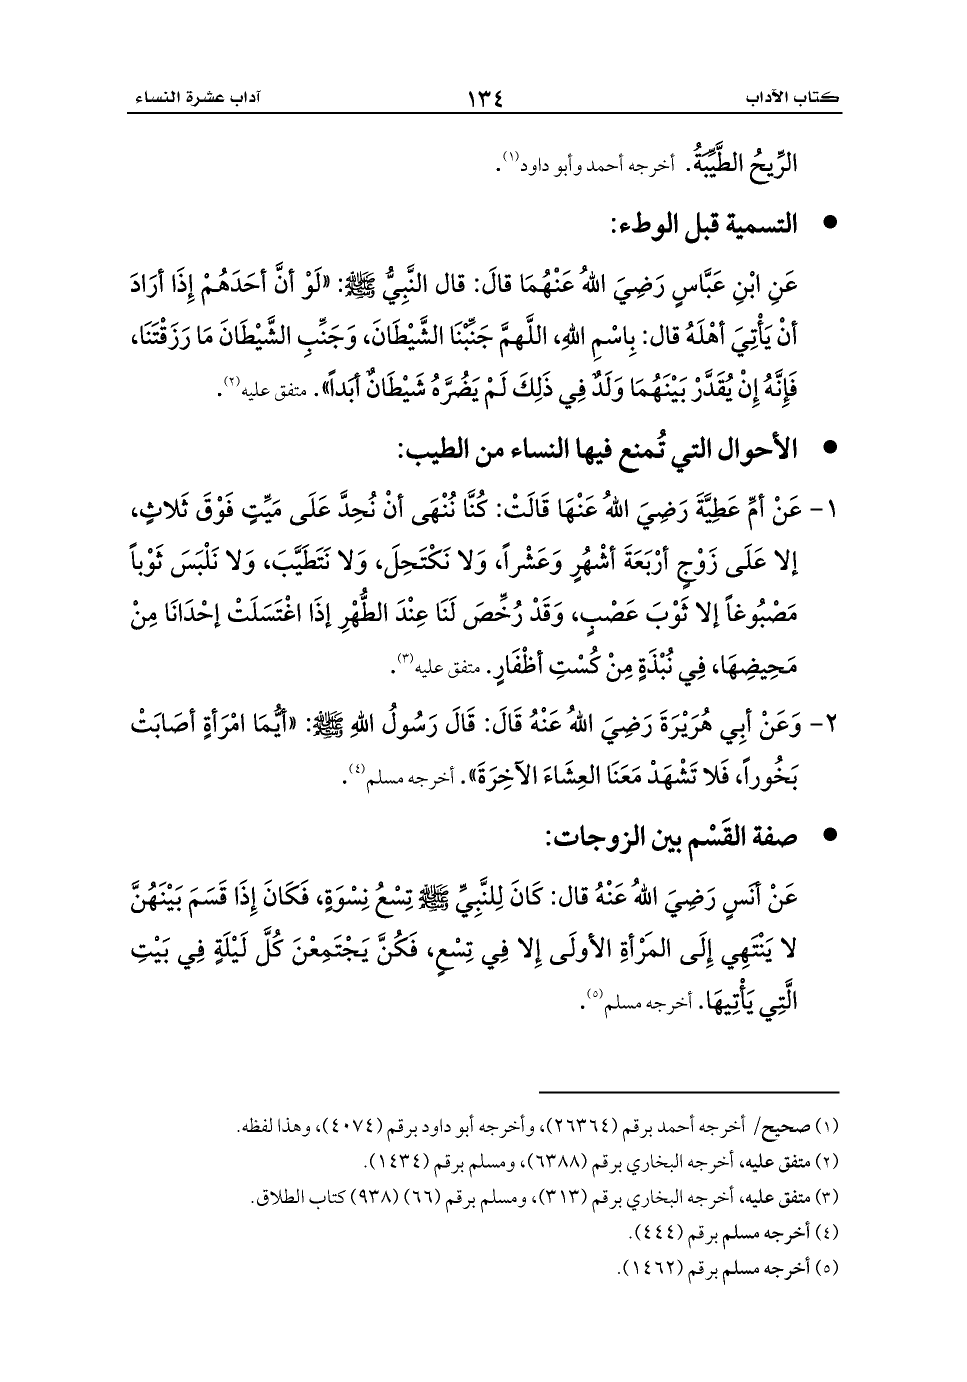 كتاب الآداب ١٣٤ آداب عشرة النساء
الرِّيحُ الطَّيِّبَةُ. أخرجه أحمد وأبو داود(١).
● التسمية قبل الوطء:
عَنِ ابْنِ عَبَّاسٍ رَضِيَ اللهُ عَنْهُمَا قالَ: قال النَّبِيُّ ﷺ: «لَوْ أنَّ أحَدَهُمْ إذَا أرَادَ
أنْ يَأْتِيَ أهْلَهُ قال: بِاسْمِ اللهِ، اللَّهمَّ جَنِّبْنَا الشَّيْطَانَ، وَجَنِّبِ الشَّيْطَانَ مَا رَزَقْتَنَا،
فَإنَّهُ إنْ يُقَدَّرْ بَيْنَهُمَا وَلَدٌ فِي ذَلِكَ لَمْ يَضُرَّهُ شَيْطَانٌ أبَداً». متفق عليه(٢).
● الأحوال التي تُمنع فيها النساء من الطيب:
١- عَنْ أمِّ عَطِيَّةَ رَضِيَ اللهُ عَنْهَا قَالَتْ: كُنَّا نُنْهَى أنْ نُحِدَّ عَلَى مَيِّتٍ فَوْقَ ثَلاثٍ،
إلا عَلَى زَوْجٍ أرْبَعَةَ أشْهُرٍ وَعَشْراً، وَلا نَكْتَحِلَ، وَلا نَتَطَيَّبَ، وَلا نَلْبَسَ ثَوْباً
مَصْبُوغاً إلا ثَوْبَ عَصْبٍ، وَقَدْ رُخِّصَ لَنَا عِنْدَ الطُّهْرِ إذَا اغْتَسَلَتْ إحْدَانَا مِنْ
مَحِيضِهَا، فِي نُبْذَةٍ مِنْ كُسْتِ أظْفَارٍ. متفق عليه(٣).
٢- وَعَنْ أبِي هُرَيْرَةَ رَضِيَ اللهُ عَنْهُ قَالَ: قَالَ رَسُولُ اللهِ ﷺ: «أيُّمَا امْرَأةٍ أصَابَتْ
بَخُوراً، فَلا تَشْهَدْ مَعَنَا العِشَاءَ الآخِرَةَ». أخرجه مسلم(٤).
● صفة القَسْم بين الزوجات:
عَنْ أنَسٍ رَضِيَ اللهُ عَنْهُ قال: كَانَ لِلنَّبِيِّ ﷺ تِسْعُ نِسْوَةٍ، فَكَانَ إذَا قَسَمَ بَيْنَهُنَّ
لا يَنْتَهِي إلَى المَرْأةِ الأولَى إلا فِي تِسْعٍ، فَكُنَّ يَجْتَمِعْنَ كُلَّ لَيْلَةٍ فِي بَيْتِ
الَّتِي يَأْتِيهَا. أخرجه مسلم(٥).
(١) صحيح/ أخرجه أحمد برقم (٢٦٣٦٤)، وأخرجه أبو داود برقم (٤٠٧٤)، وهذا لفظه.
(٢) متفق عليه، أخرجه البخاري برقم (٦٣٨٨)، ومسلم برقم (١٤٣٤).
(٣) متفق عليه، أخرجه البخاري برقم (٣١٣)، ومسلم برقم (٦٦) (٩٣٨) كتاب الطلاق.
(٤) أخرجه مسلم برقم (٤٤٤).
(٥) أخرجه مسلم برقم (١٤٦٢).